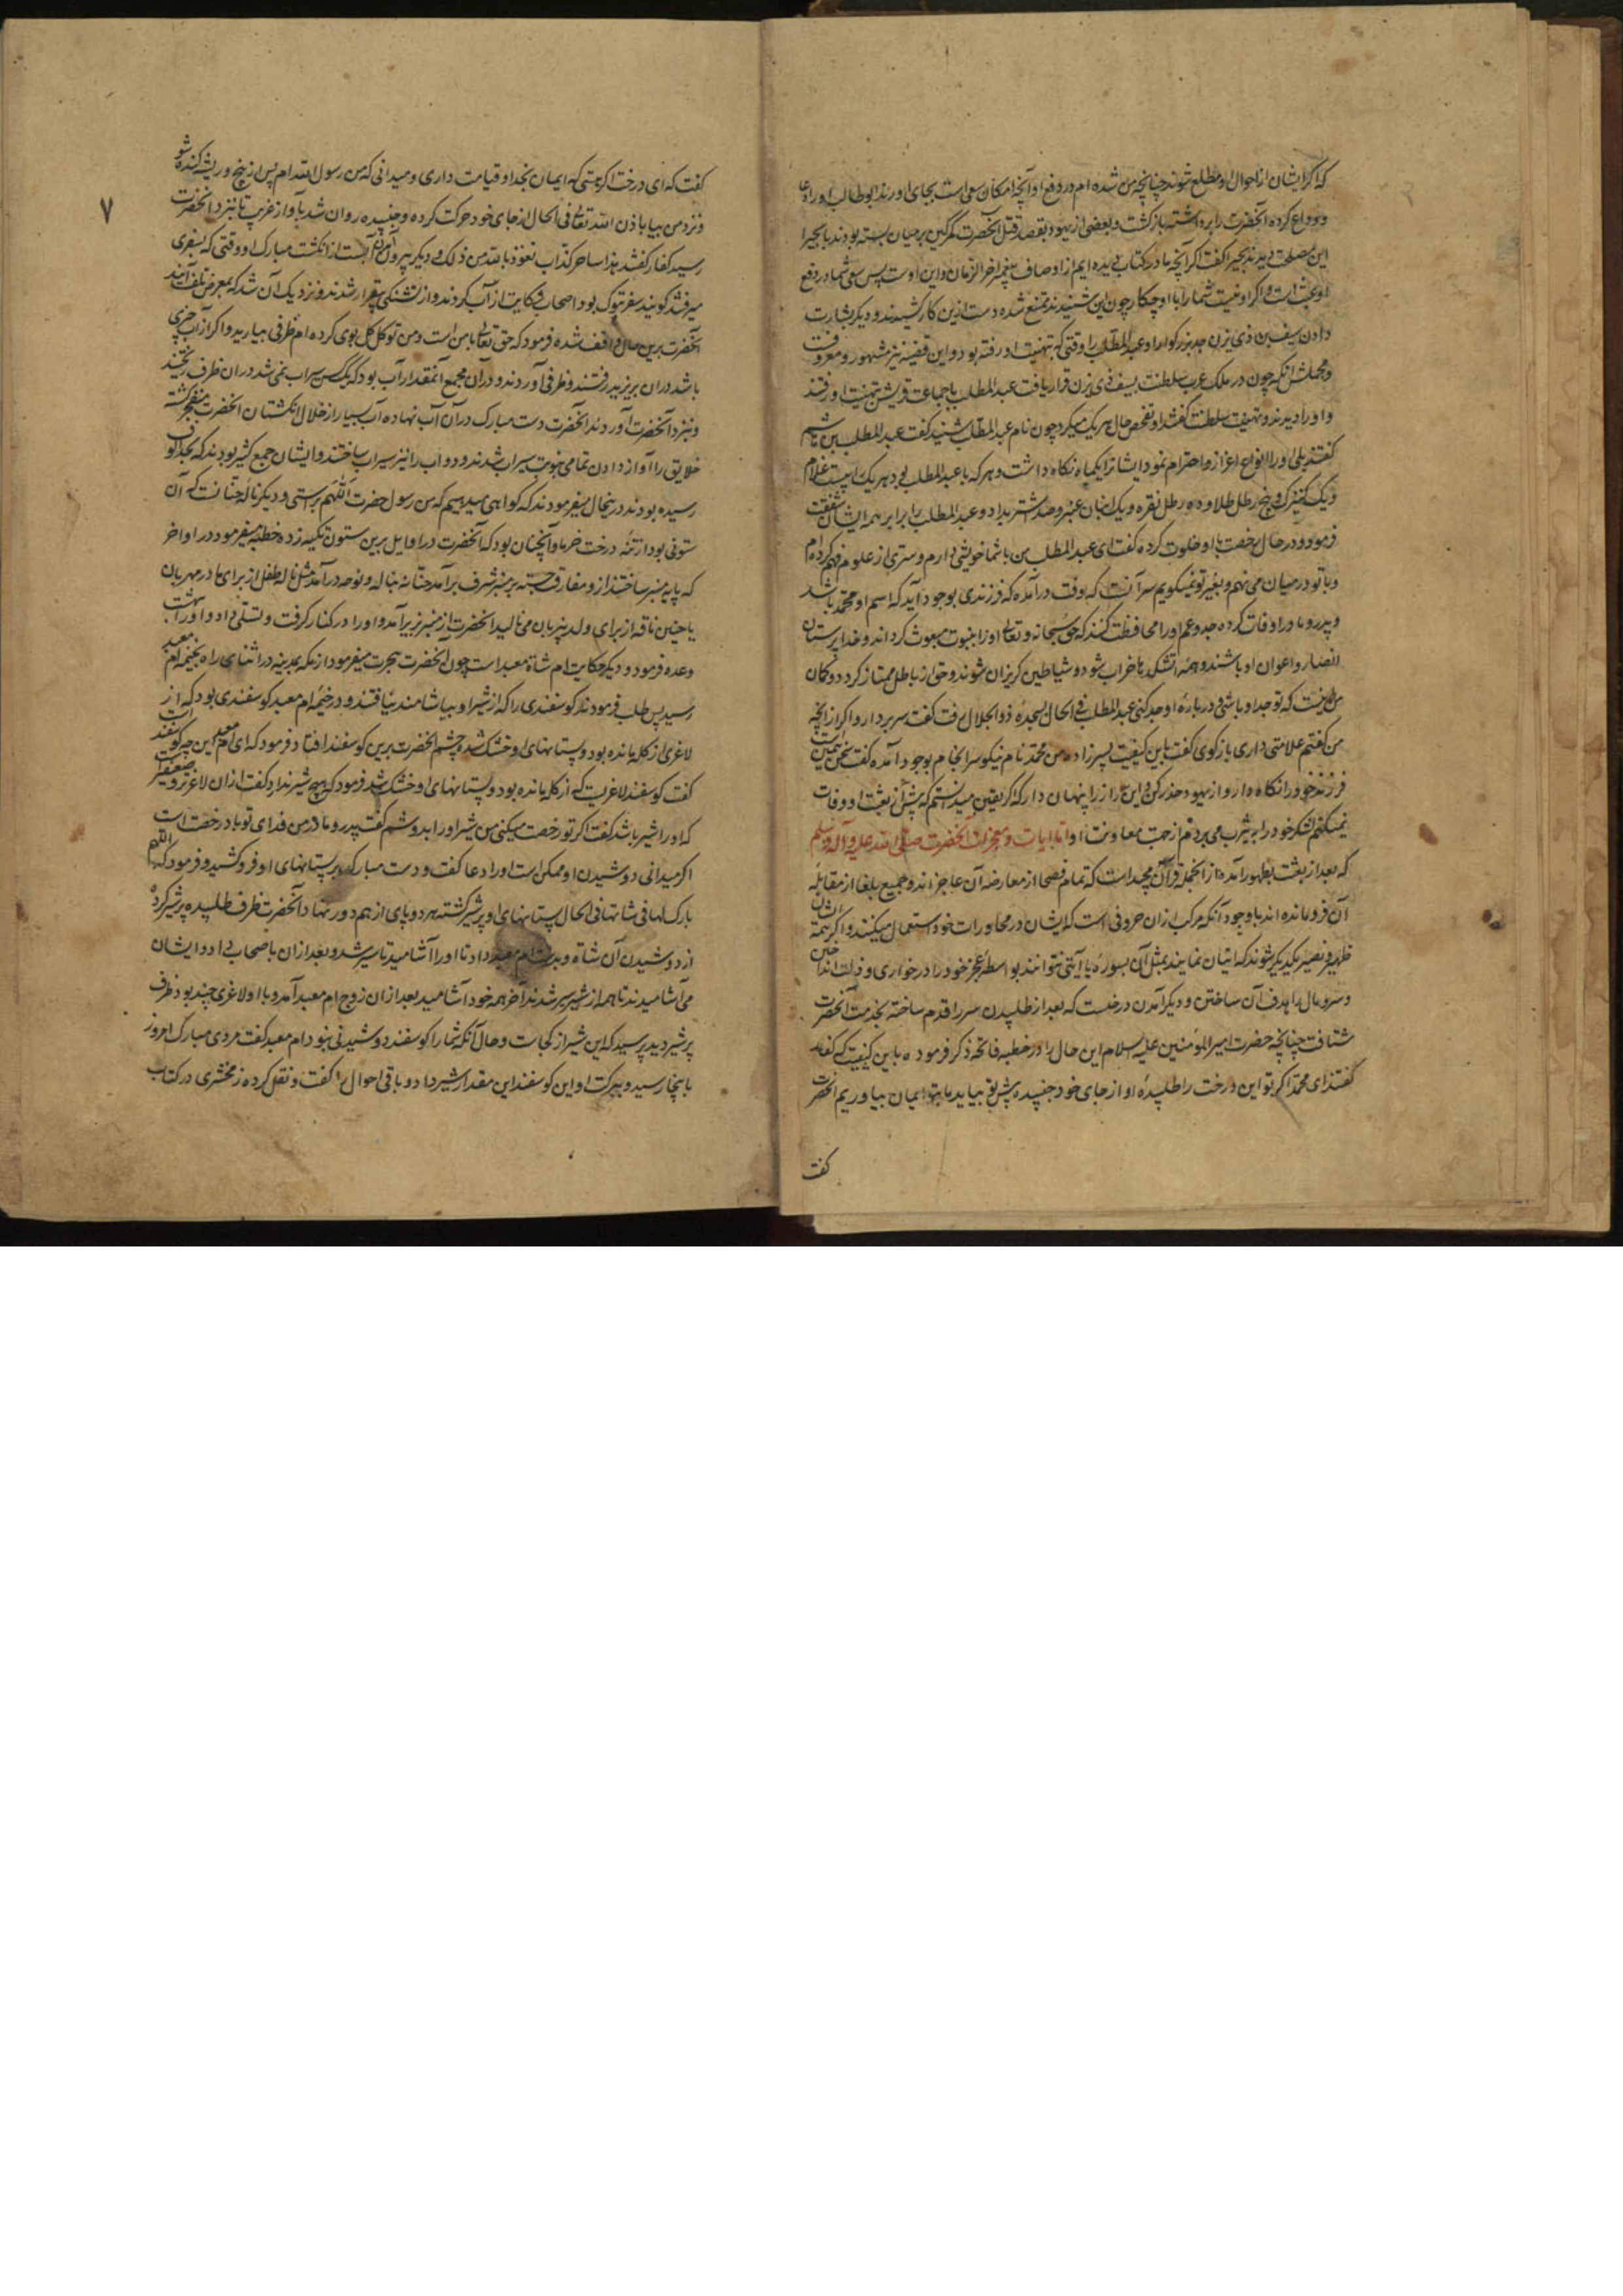 که اگر ایشان از احوال او مطلع شوند چنانچه من شده ام در دفع او آنچه امکان سعی است بجای اورند ابو طالب او را دعا
و وداع کرده آنحضرت را برداشته بازگشت و بعضی از یهود بقصد قتل آنحضرت کمر کین بر میان بسته بودند با بحیرا
این مصلحت دیدند بحیرا گفت اگر آنچه ما در کتاب دیده ایم از اوصاف پیغمبر اخر الزمان و این اوست پس سعی شما در دفع
او عبث است و اگر او نیست شما را با او چکار چون این شنیدند ممتنع شده دست ازین کار کشیدند و دیگر بشارت
دادن سیف بن ذی یزن جد بزرگوار او عبد المطلب را وقتی که بتهنیت او رفته بود و این قضیه نیز مشهور و معروفست
و مجملش انکه چون در ملک عرب سلطنت بسیف ذی یزن قرار یافت عبد المطلب با جماعت قریش بتهنیت او رفتند
و او را دیدند و تهنیت سلطنت گفتند او تفحص حال هر یک میکرد چون نام عبد المطلب شنید گفت عبد المطلب بن هاشم
گفتند بلی او را انواع اعزاز و احترام نمود ایشانرا یکماه نگاه داشت و هر که با عبد المطلب بود هر یک را بیست غلام
و یک کنیزک و پنج رطل طلا و ده رطل نقره و یک انبان عنبر و صد شتر بداد و عبد المطلب را برابر همه ایشان شفقت
فرمود و در حال رخصت با او خلوت کرده گفت ای عبد المطلب من با شما خویشی دارم و سری از علوم فهم کرده ام
و با تو در میان می نهم و بغیر تو نمیگویم سر آنست که وقت درآمده که فرزندی بوجود آید که اسم او محمد باشد
و پدر و مادر او فات کرده جد و عم او را محافظت کنند که حق سبحانه و تعالی او را بنبوت مبعوث گرداند و خدا پرستان
انصار و اعوان او باشند و همه آتشکده ها خراب شود و شیاطین گریزان شوند و حق از باطل ممتاز گردد و گمان
من اینست که تو جد او باشی و در باره او جد کنی عبد المطلب فی الحال بسجده ذو الجلال رفت گفت سر بردار و اگر از آنچه
من گفتم علامتی داری بازگوی گفت باین کیفیت پسر زاده من محمد نام نیکو سرانجام بوجود آمده گفت سخن همین است
فرزند خود را نگاه دار و از یهود حذر کن و این راز را پنهان دار که اگر یقین میدانستم که پیش از بعثت او وفات
نمیکنم لشکر خود را به یثرب می بردم از جهت معاونت او اما ایات و معجزات آنحضرت صلی الله علیه و آله و سلم
که بعد از بعثت بظهور آمده از انجمله قرآن مجید است که تمام فصحا از معارضه آن عاجزاند و جمیع بلغا از مقابله
آن فرو مانده اند با وجود آنکه مرکب از ان حروفی است که ایشان در محاورات خود استعمال میکنند و اگر همه ایشان
ظهیر و نصیر یکدیگر شوند که اتیان نمایند بمثل آن بسوره یا آیتی نتوانند بواسطه عجز خود را در خواری و ذلت انداختن
و سر و مال را هدف آن ساختن و دیگر آمدن درخت که بعد از طلبیدن سر را قدم ساخته بخدمت آنحضرت
شتافت چنانچه حضرت امیر المؤمنین علیه السلام این حال را در خطبه قانحه ذکر فرموده باین کیفیت که کفار
گفتند ای محمد اگر تو این درخت را طلبیده او از جای خود جنبیده پیش تو بیاید ما بتو ایمان بیاوریم آنحضرت
گفت
۷
گفت که ای درخت اگر هستی که ایمان بخدا و قیامت داری و میدانی که من رسول الله ام پس از بیخ و ریشه کنده شو
و نزد من بیا باذن الله تعالی فی الحال از جای خود حرکت کرده و جنبیده روان شد بآواز غریب تا بنزد آنحضرت
رسید کفار گفتند هذا ساحر کذاب نعوذ بالله من ذلک و دیگر بیرون آمدن آبست از انگشت مبارک او وقتی که بسفری
میرفتند گویند سفر تبوک بود اصحاب شکایت از آب کردند و از تشنگی بیقرار شدند و نزدیک آن شد که بمعرض تلف آیند
آنحضرت برین حال واقف شده فرمود که حق تعالی با من است و من توکل کلی بوی کرده ام ظرفی بیارید و اگر از آب چیزی
باشد در ان بریزید رفتند و ظرفی آوردند و در آن مجمع آنقدر آب بود که یک کس سیراب نمی شد در ان ظرف ریختند
و بنزد آنحضرت آوردند آنحضرت دست مبارک در آن آب نهاده آب بسیار از خلال انگشتان آنحضرت منفجر گشته
خلایق را آواز دادن تمامی بنوبت سیراب شدند و دواب را نیز سیراب ساختند و ایشان جمع کثیر بودند که بحد الوف
رسیده بودند در ینحال میفرمودند که گواهی میدهیم که من رسول حضرت اللهم براستی و دیگر ناله حنانه است که آن
ستونی بود از تنه درخت خرما و آنچنان بود که آنحضرت در اوایل برین ستون تکیه زده خطبه میفرمود در اواخر
که پایه منبر ساختند از و مفارقت جسته بر منبر شرف بر آمد حنانه بناله و نوحه درآمد مثل ناله طفل از برای مادر مهربان
یا حنین ناقه از برای ولد بزبان می نالید آنحضرت از منبر زیر آمده او را در کنار گرفت و تسلی داد و او را بهشت
وعده فرمود و دیگر حکایت ام شاة معبد است چون آنحضرت هجرت میفرمود از مکه بمدینه در اثنای راه بخیمه ام معبد
رسید پس طلب فرمودند گوسفندی را که از شیر او بیاشامند نیافتند و در خیمه ام معبد گوسفندی بود که از
لاغری از گله مانده بود و پستانهای او خشک شده چشم آنحضرت برین گوسفند افتاد فرمود که ای ام معبد این چه گوسفند است
گفت گوسفند لاغریست که از گله مانده بود و پستانهای او خشک شد فرمود که هیچ شیر ندارد گفت از ان لاغرتر و ضعیفتر است
که او را شیر باشد گفت اگر تو رخصت میکنی من شیر او را بدوشم گفت پدر و مادر من فدای تو باد رخصت است
اگر میدانی دوشیدن او ممکن است او را دعا گفت و دست مبارک بر پستانهای او فرو کشید و فرمود که اللهم
بارک لها فی شاتها فی الحال پستانهای او پر شیر گشته هر دو پای از هم دور نهاد آنحضرت ظرف طلبیده پر شیر کرد
از دوشیدن آن شاة و بدست ام معبد داد تا او را آشامید تا سیر شد و بعد از ان باصحاب داد و ایشان
می آشامیدند تا همه از شیر سیر شدند آخر همه خود آشامید بعد از ان زوج ام معبد آمد و با او لاغری چند بود ظرف
پر شیر دید پرسید که این شیر از کجاست و حال آنکه شما را گوسفند دوشیدنی نبود ام معبد گفت مردی مبارک امروز
باینجا رسید و ببرکت او این گوسفند این مقدار شیر داد و باقی احوال را گفت و نقل کرده زمخشری در کتاب